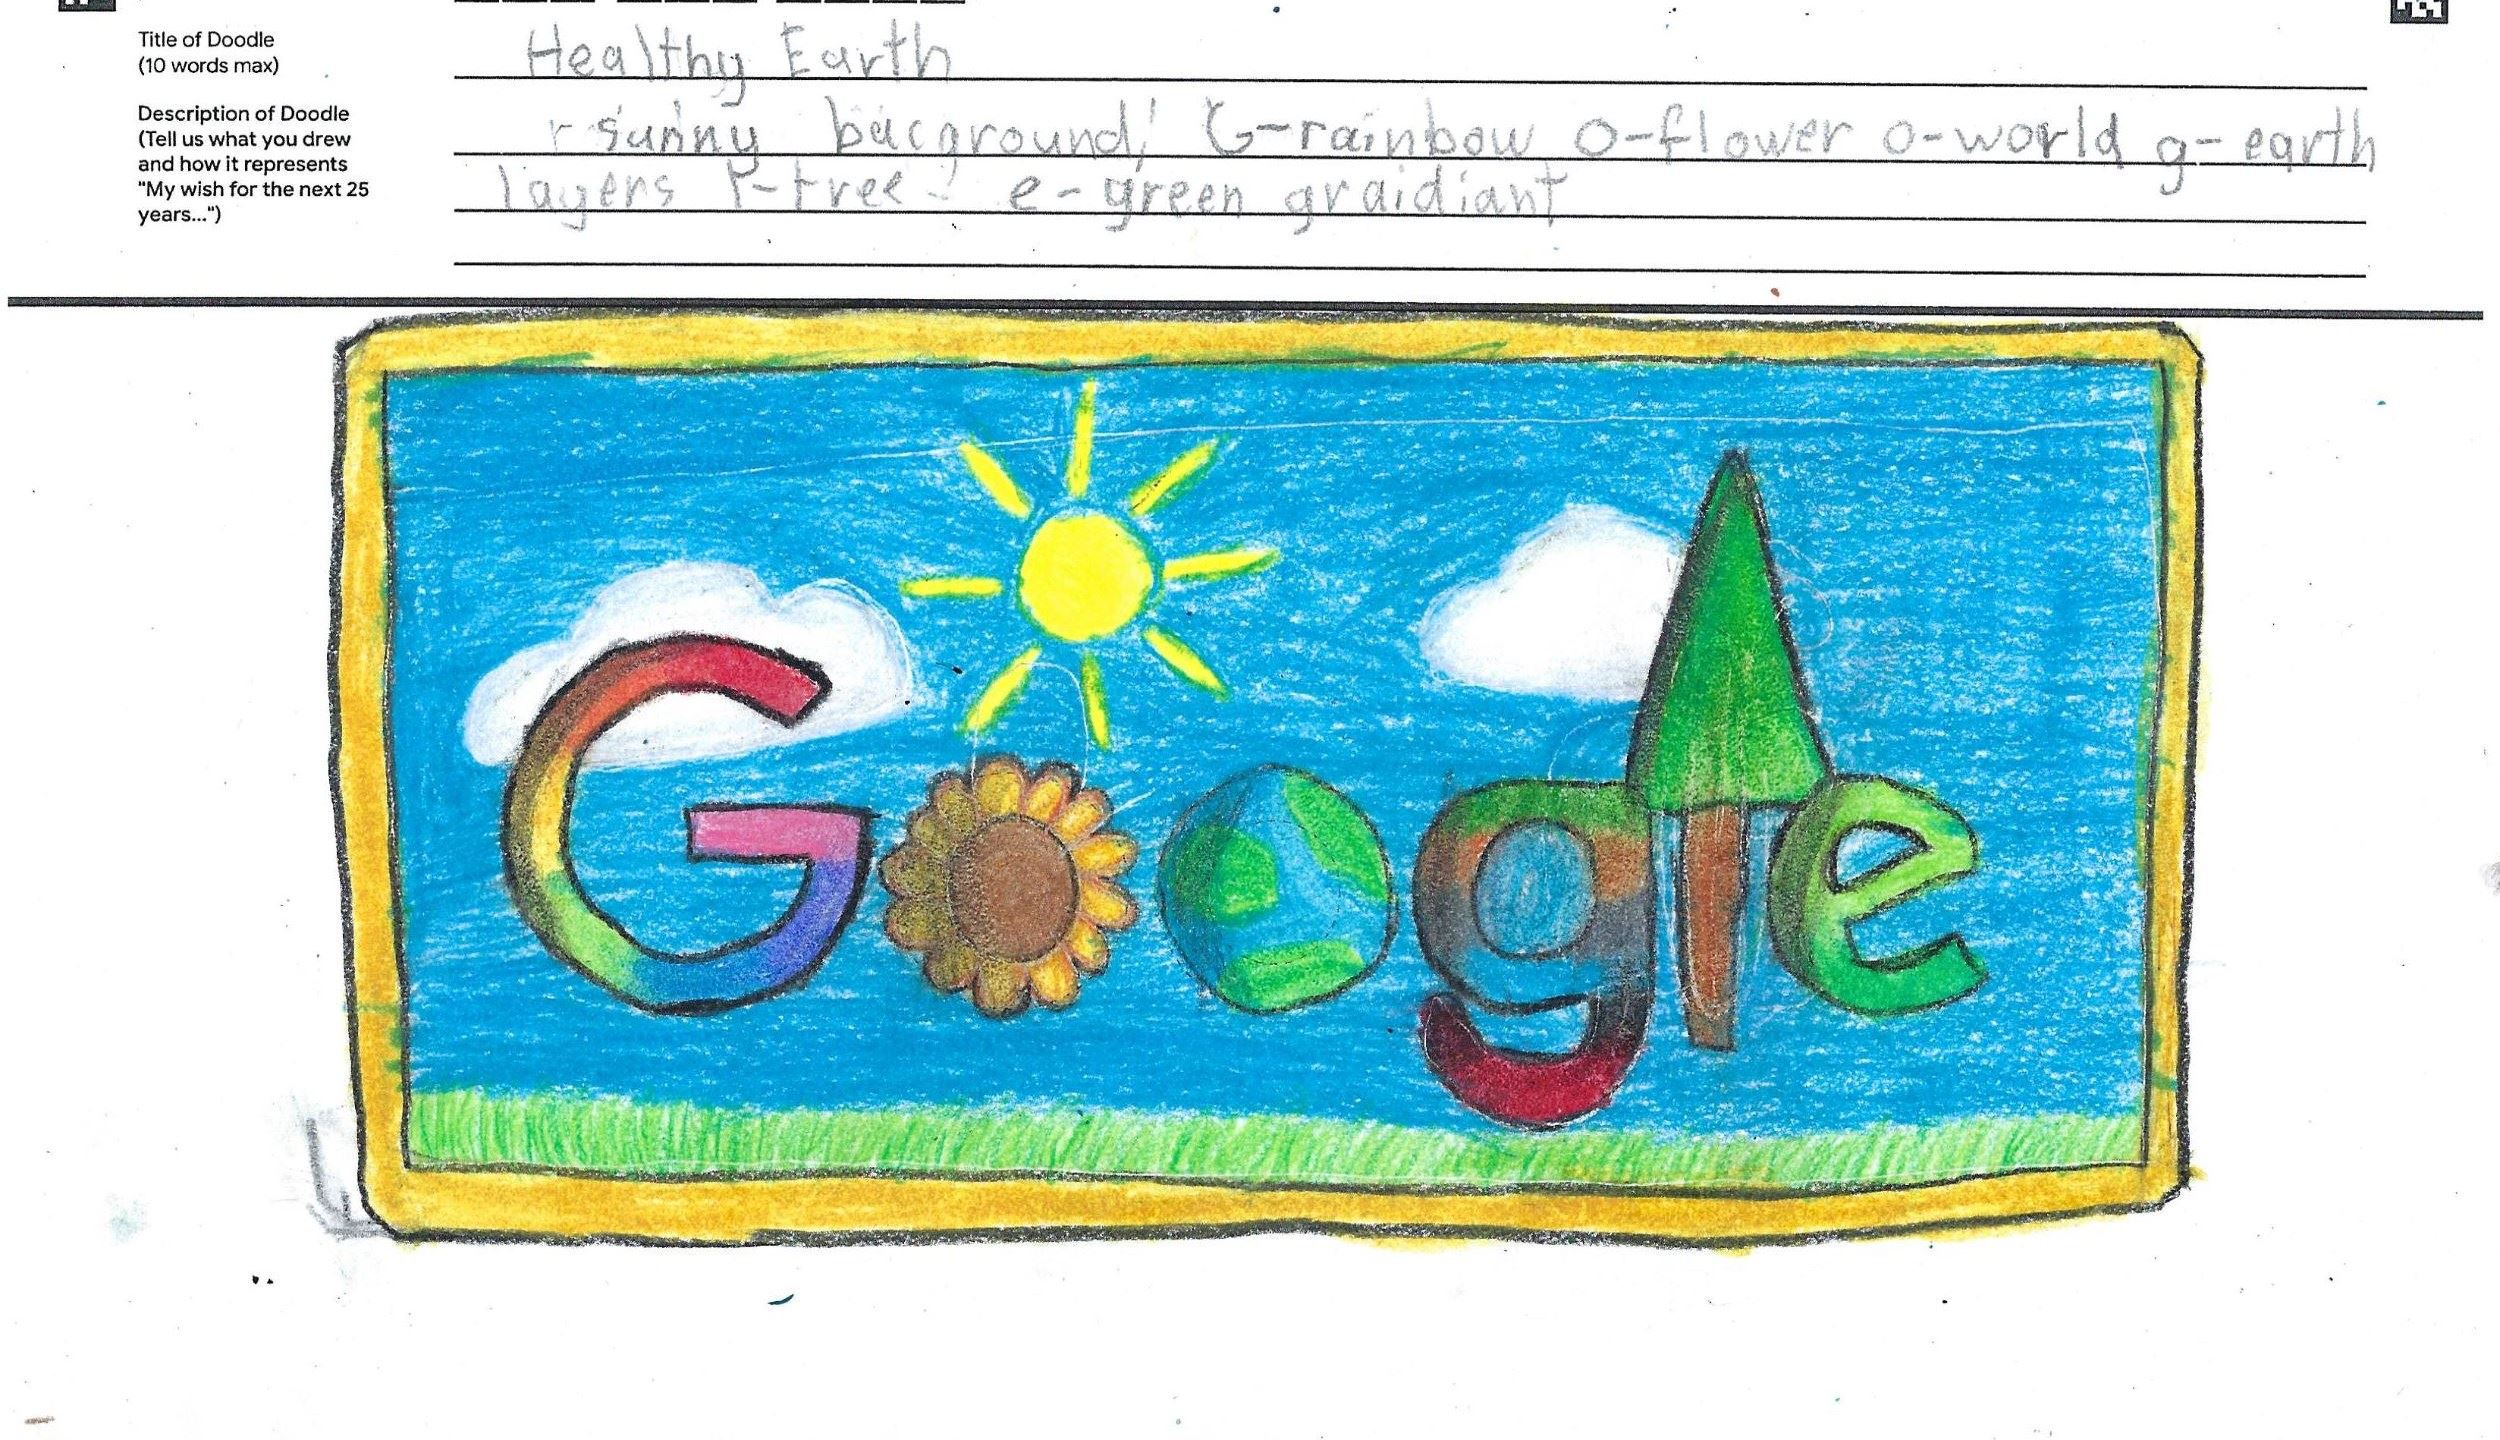 Title of Doodle
(10 words max)
Healthy Earth
Description of Doodle
(Tell us what you drew
and how it represents
"My wish for the next 25
years...")
sunny bacground, G-rainbow o-flower o-world g-earth
layers l-tree - e-green graidiant
Google